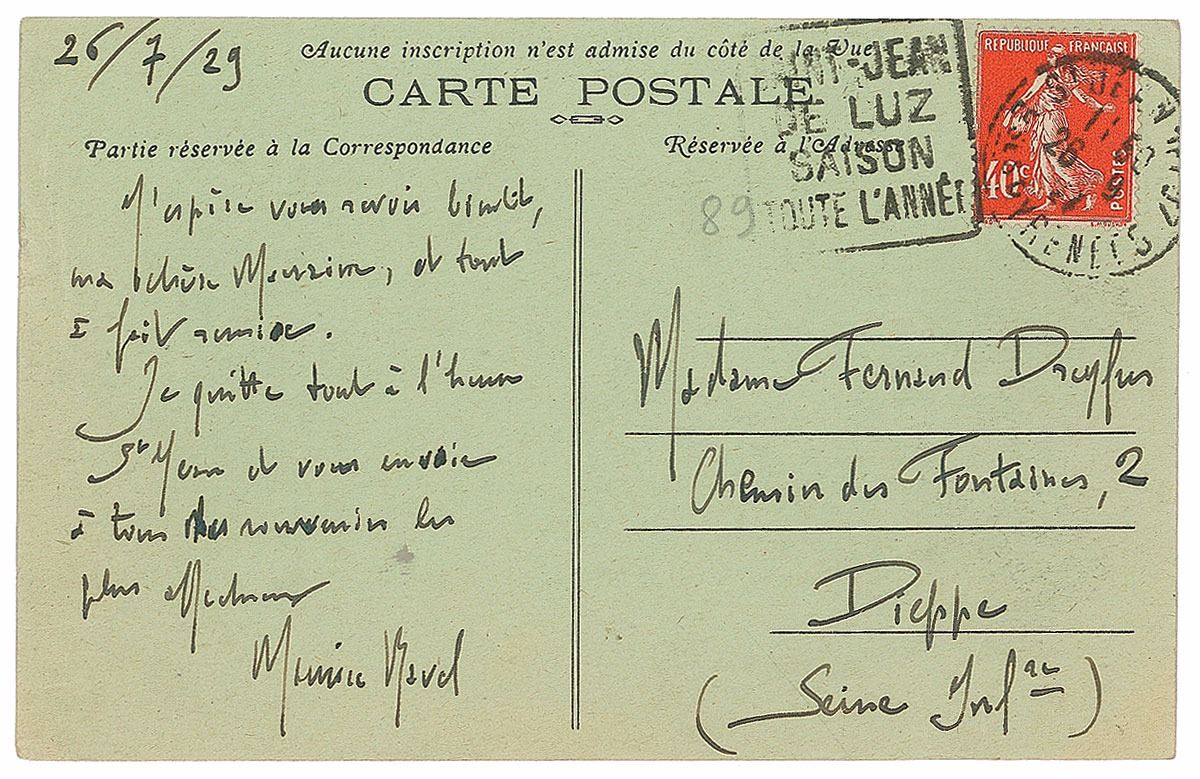 26/7/29
Aucune inscription n'est admise du côté de la Vue
CARTE POSTALE
Partie réservée à la Correspondance
Réservée à l'Adresse
INT-JEAN
DE LUZ
SAISON
TOUTE L'ANNÉE
RÉPUBLIQUE FRANÇAISE
40c
POSTES
PYRENEES
89
J'espère vous revoir bientôt,
ma chère Marraine, et tout
à fait remise.
Je quitte tout à l'heure
St Jean et vous envoie
à tous mes souvenirs les
plus affectueux
Maurice Ravel
Madame Fernand Dreyfus
Chemin des Fontaines, 2
Dieppe
(Seine Infre)